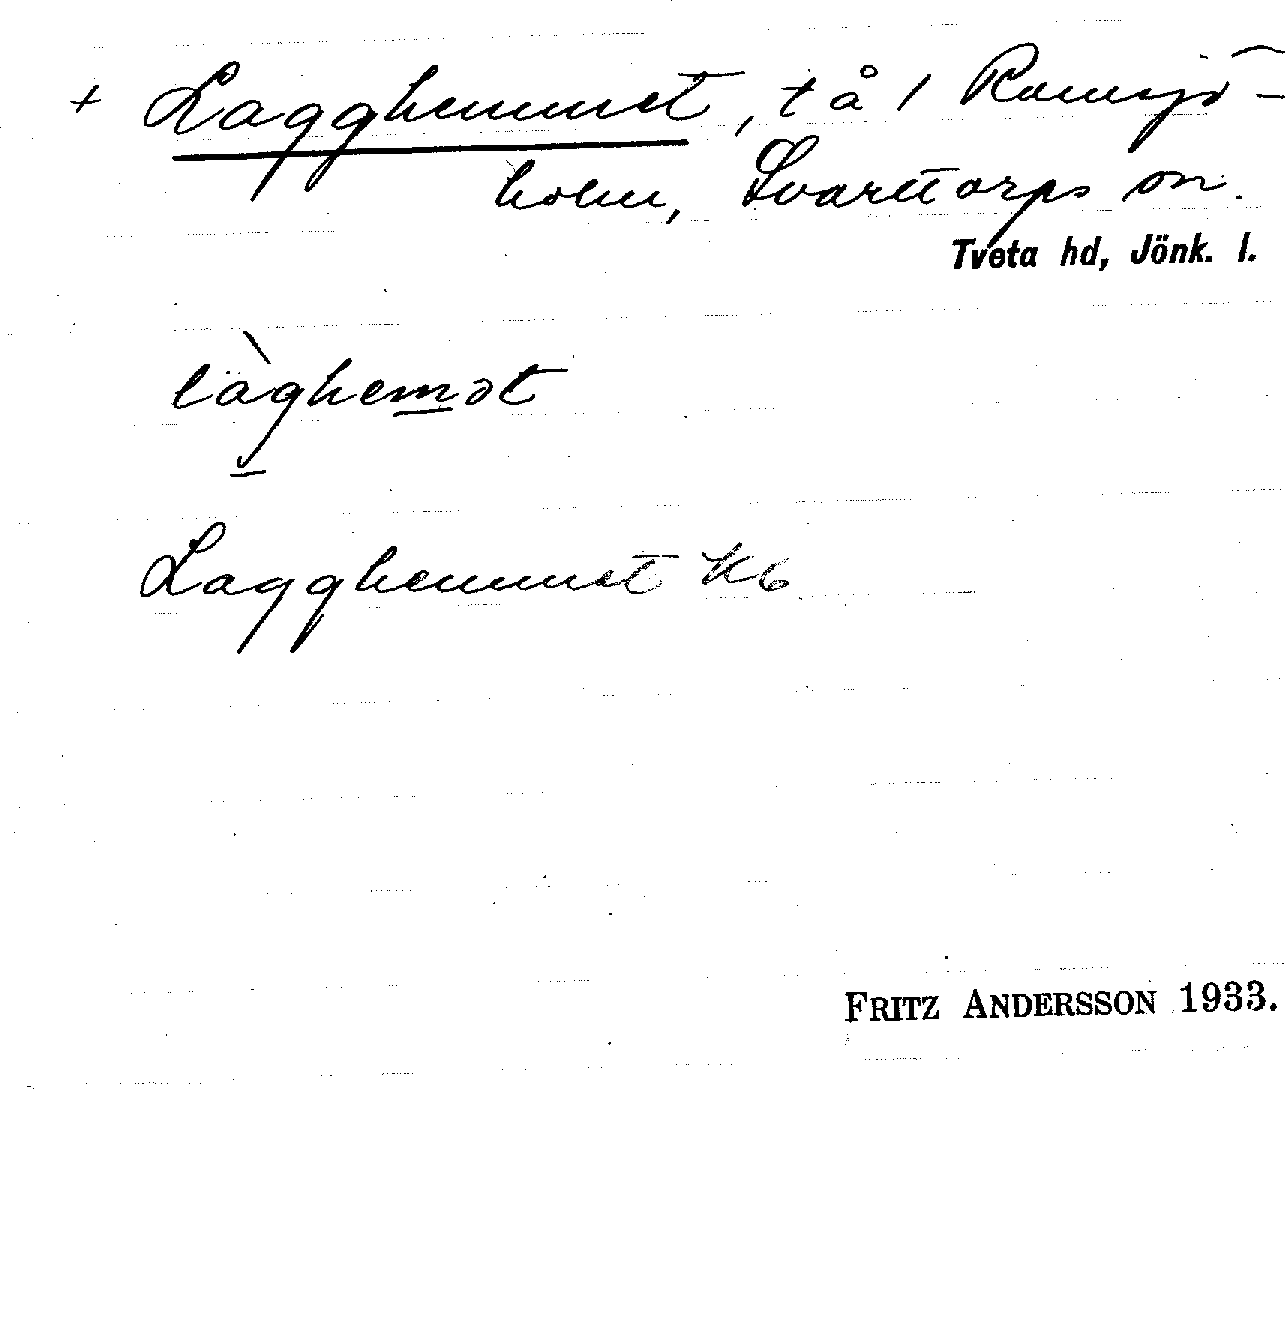 + Lagghemmet, t å 1 Ramsjö-
holm, Svarttorps sn.
Tveta hd, Jönk. l.
làghemət
Lagghemmet Kb
FRITZ ANDERSSON 1933.